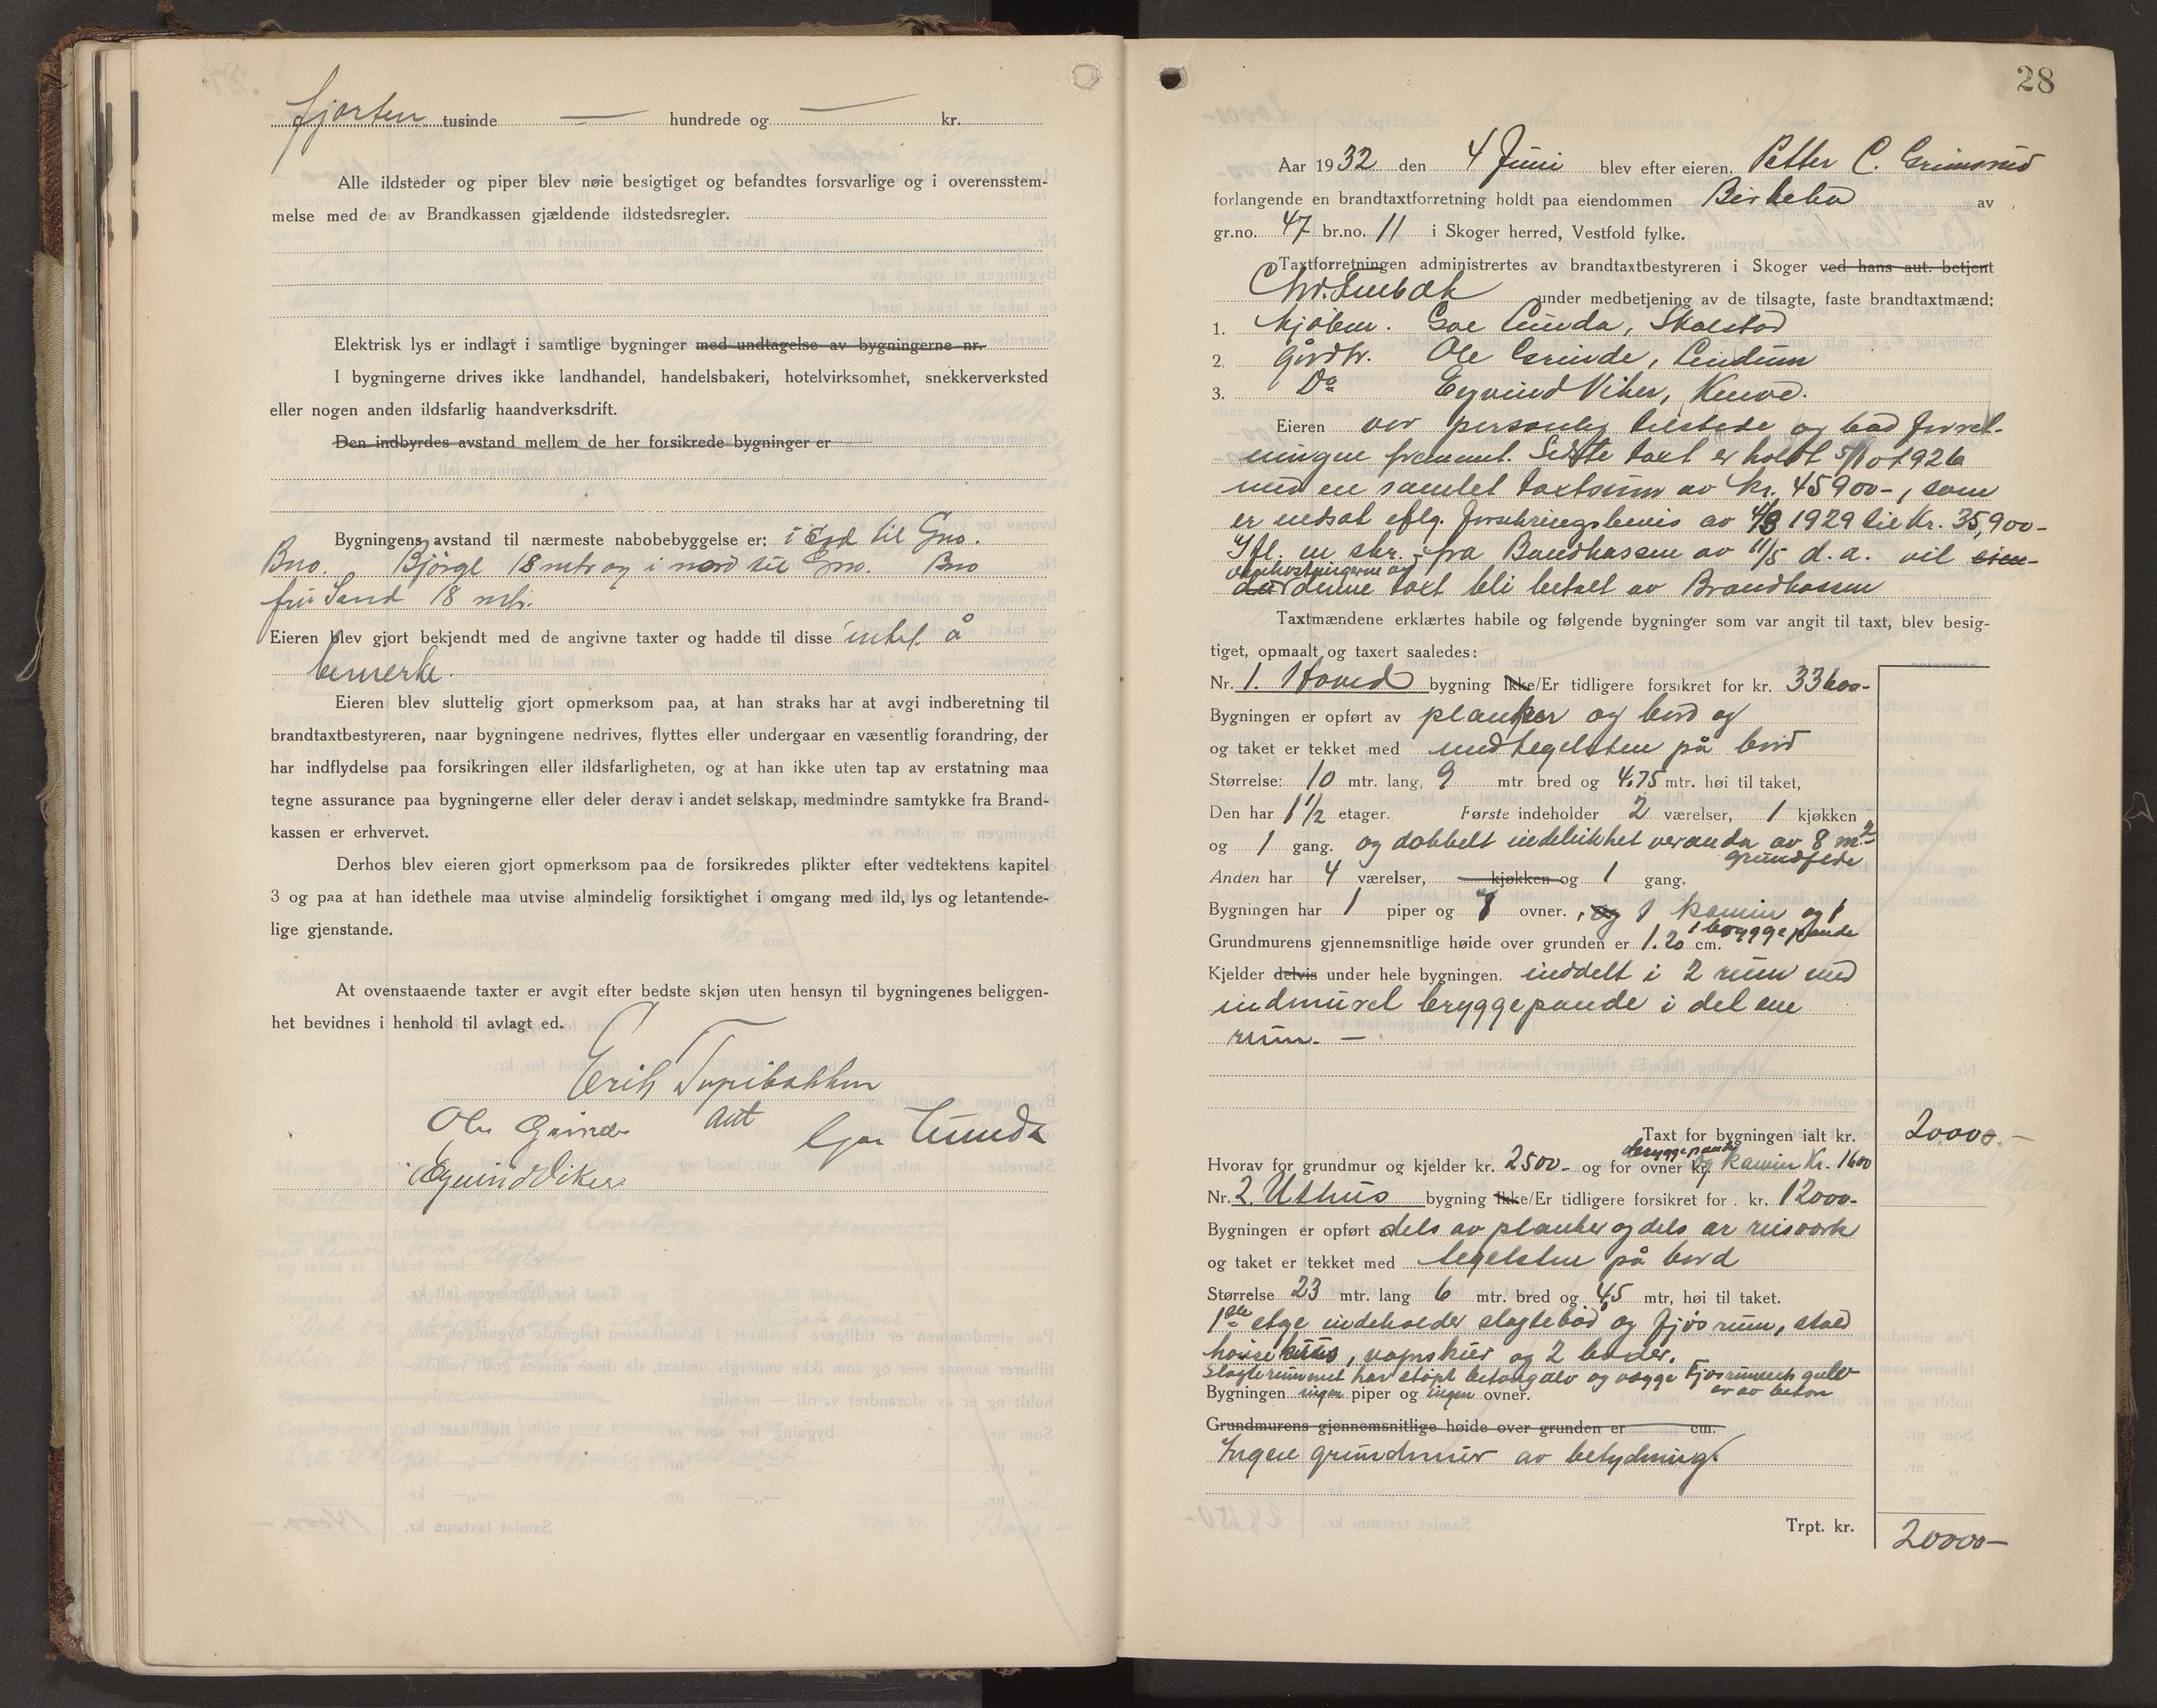 fjorten tusinde — hundrede og — kr.
Alle ildsteder og piper blev nøie besigtiget og befandtes forsvarlige og i overensstem-
melse med de av Brandkassen gjældende ildstedsregler.
Elektrisk lys er indlagt i samtlige bygninger med undtagelse av bygningerne nr.
I bygningerne drives ikke landhandel, handelsbakeri, hotelvirksomhet, snekkerverksted
eller nogen anden ildsfarlig haandverksdrift.
Den indbyrdes avstand mellem de her forsikrede bygninger er
Bygningens avstand til nærmeste nabobebyggelse er: i syd til Gno.
Bno. Bjørgl 18 mtr og i nord til Gno. Bno
fru Sand 18 mtr.
Eieren blev gjort bekjendt med de angivne taxter og hadde til disse intet å
bemerke.
Eieren blev sluttelig gjort opmerksom paa, at han straks har at avgi indberetning til
brandtaxtbestyreren, naar bygningene nedrives, flyttes eller undergaar en væsentlig forandring, der
har indflydelse paa forsikringen eller ildsfarligheten, og at han ikke uten tap av erstatning maa
tegne assurance paa bygningerne eller deler derav i andet selskap, medmindre samtykke fra Brand-
kassen er erhvervet.
Derhos blev eieren gjort opmerksom paa de forsikredes plikter efter vedtektens kapitel
3 og paa at han idethele maa utvise almindelig forsiktighet i omgang med ild, lys og letantende-
lige gjenstande.
At ovenstaaende taxter er avgit efter bedste skjøn uten hensyn til bygningenes beliggen-
het bevidnes i henhold til avlagt ed.
Erik
aut
Ole Grinde Lunda
Eyvind Viker
28
Aar 1932 den 4 Juni blev efter eieren, Petter C. Grimsrud
forlangende en brandtaxtforretning holdt paa eiendommen Birkebo av
gr.no. 47 br.no. 11 i Skoger herred, Vestfold fylke.
Taxtforretningen administrertes av brandtaxtbestyreren i Skoger ved hans aut. betjent
Chr. under medbetjening av de tilsagte, faste brandtaxtmænd:
1. Kjøbm. Lunda, Skalstad
2. Gårdbr. Ole Grinde, Lindum
3. Do Eyvind Viker,
Eieren var personlig tilstede og bad forret-
ningen fremmet. Sidste taxt er holdt 5/10 1926
med en samlet taxtsum av kr. 45900-, som
er nedsat iflg. forsikringsbevis av 4/3 1929 til kr. 35,900-
Ifl. en skr. fra Brandkassen av 11/5 d. a. vil eien-
omkostningerne og
denne taxt bli betalt av Brandkassen
Taxtmændene erklærtes habile og følgende bygninger som var angit til taxt, blev besig-
tiget, opmaalt og taxert saaledes:
Nr. 1. Hoved bygning Ikke/Er tidligere forsikret for kr. 33600-
Bygningen er opført av planker og bord og
og taket er tekket med med tegelsten på bord
Størrelse: 10 mtr. lang, 9 mtr bred og 4.75 mtr. høi til taket,
Den har 1 1/2 etager. Første indeholder 2 værelser, 1 kjøkken
og 1 gang. og dobbelt indebikket veranda av 8 m2
grundflede
Anden har 4 værelser, kjøkken og 1 gang.
Bygningen har 1 piper og 7 ovner. , og 1 kamin og 1
1 bryggepande
Grundmurens gjennemsnitlige høide over grunden er 1.20 cm.
Kjelder delvis under hele bygningen. inddelt i 2 rum med
indmuret bryggepande i det ene
rum. —
Taxt for bygningen ialt kr. 20000.-
bryggepande
Hvorav for grundmur og kjelder kr. 2500- og for ovner kr. og kamin kr. 1600
Nr. 2. Uthus bygning Ikke/Er tidligere forsikret for . kr. 12000-
Bygningen er opført dels av planker og dels av reisverk
og taket er tekket med tegelsten på bord
Størrelse 23 mtr. lang 6 mtr. bred og 4,5 mtr, høi til taket.
1ste etage indeholder slagtebod og fjøsrum, stald
hønsehus, vognskur og 2 boder.
Slagterummet har støpt betongulv og vægge Fjøsrummets gulv
er av beton
Bygningen ingen piper og ingen ovner.
Grundmurens gjennemsnitlige høide over grunden er cm.
Ingen grundmur av betydning.
Trpt. kr. 20000-